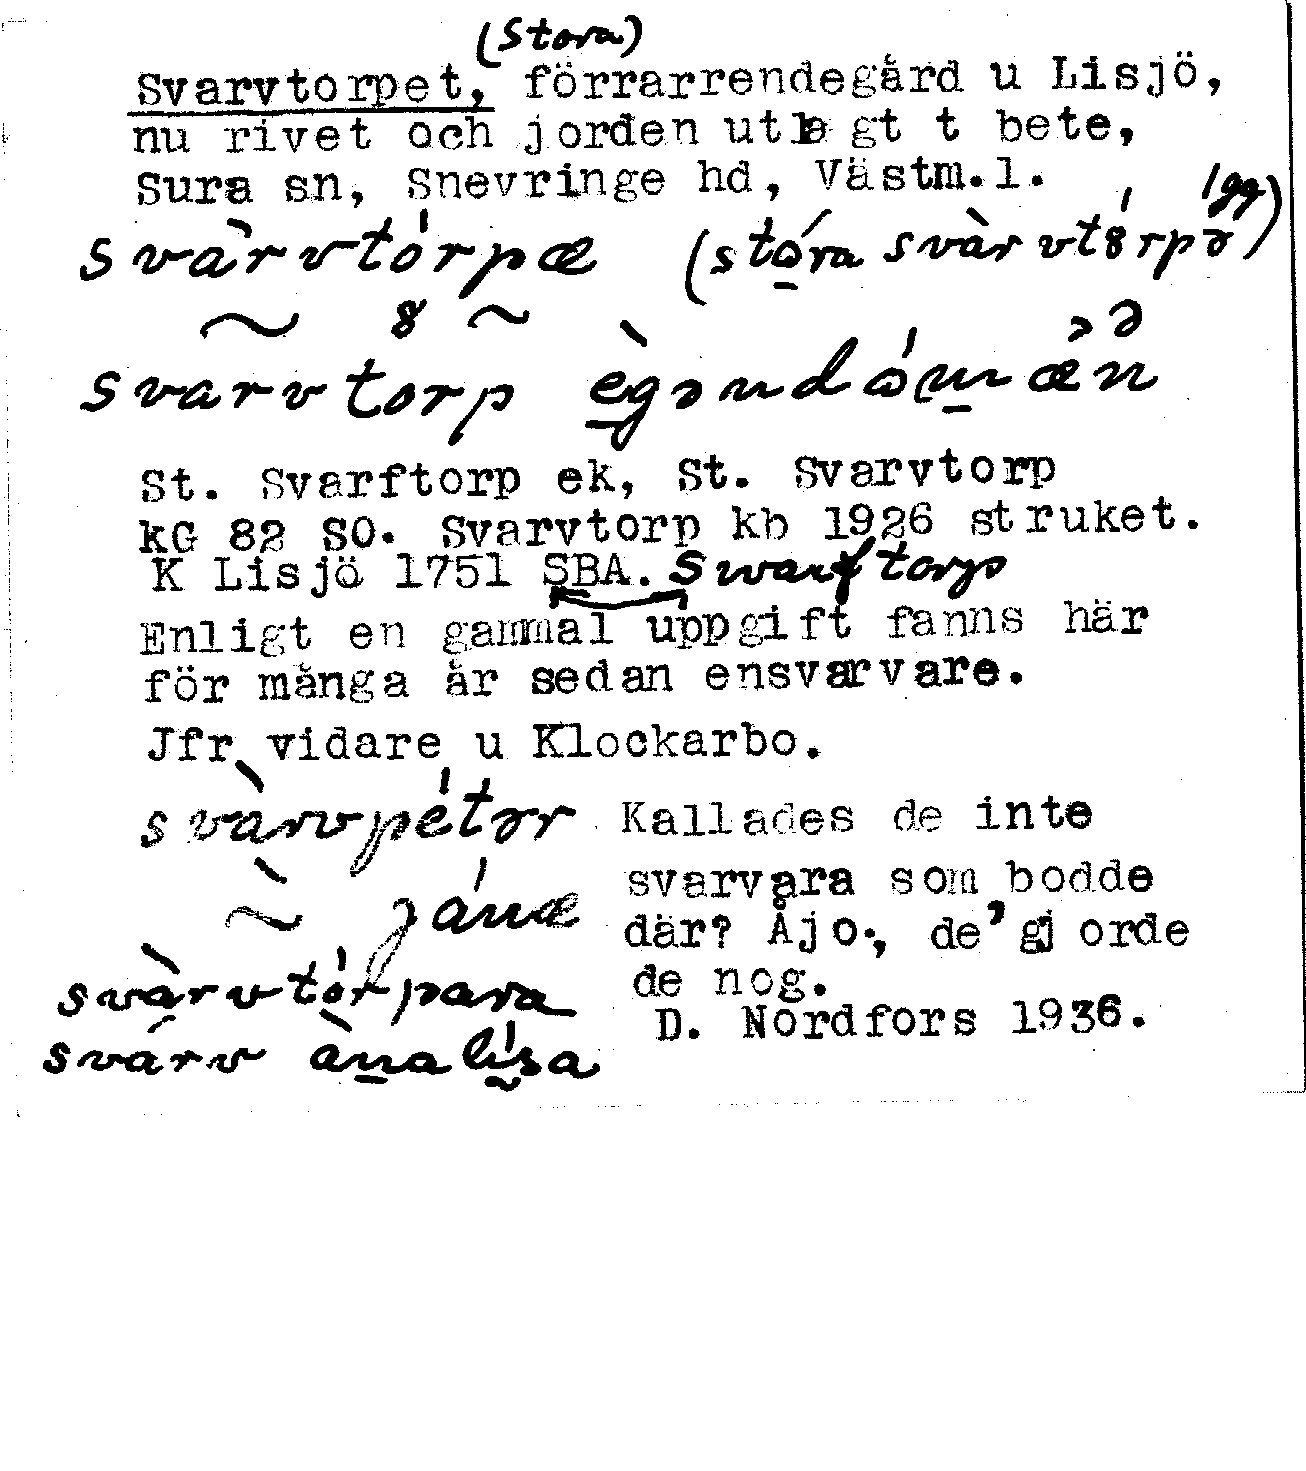 (Stora)
Svarvtorpet, förrarrendegård u Lisjö,
nu rivet och jorden utlagt t bete,
Sura sn, Snevringe hd, Västm.l.
svàrvtórpæ (stóra svàrvtórpə 1gg)
svarvtorp ègəndómæn
St. Svarftorp ek, St. Svarvtorp
kG 82 SO. Svarvtorp kb 1926 struket.
K Lisjö 1751 SBA. Swarftorp
Enligt en gammal uppgift fanns här
för många år sedan ensvarvare.
Jfr vidare u Klockarbo.
svàrvpétər Kallades de inte
svarvara som bodde
~ jánæ
där? Åjo., de' gjorde
svàrvtórpara de nog.
D. Nordfors 1936.
svárv ànalísa